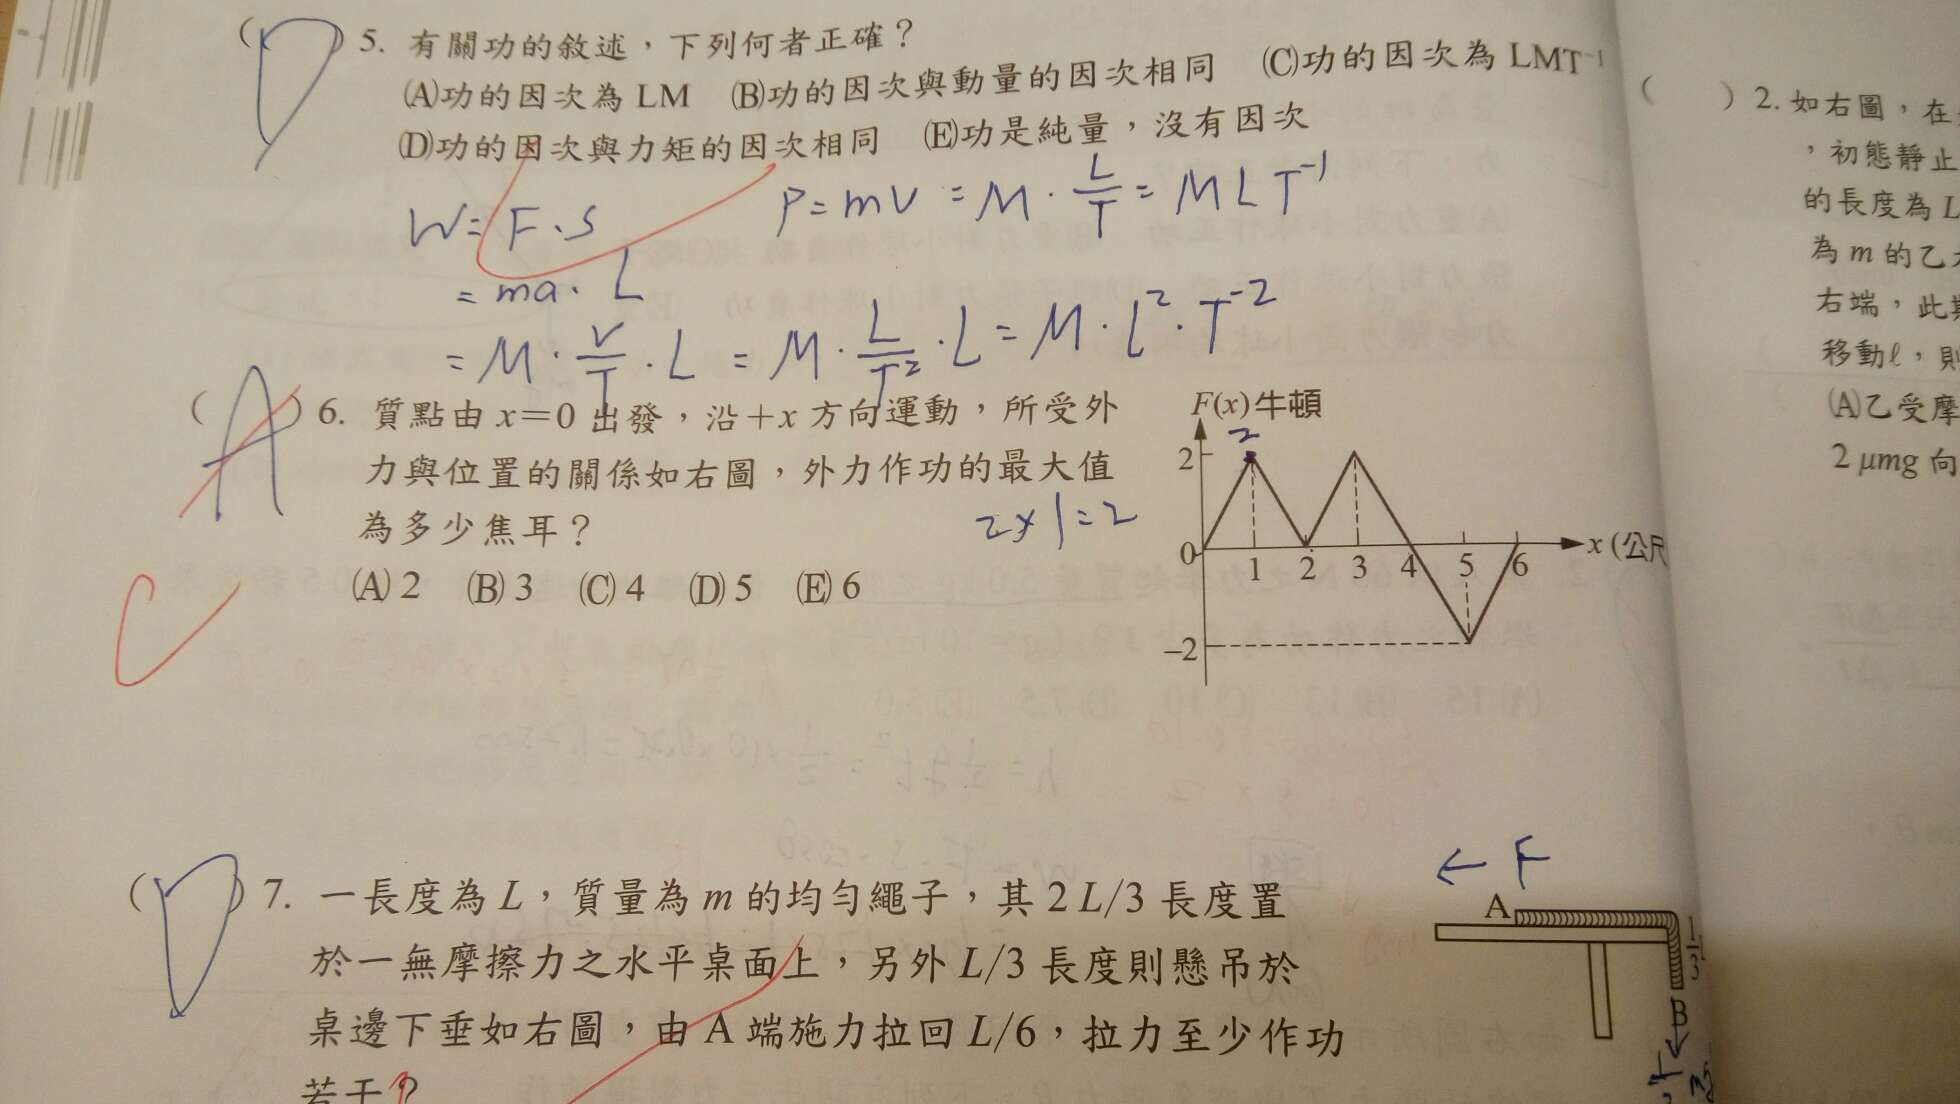 (D) 5. 有關功的敘述，下列何者正確？
(A)功的因次為 LM (B)功的因次與動量的因次相同 (C)功的因次為 LMT⁻¹
(D)功的因次與力矩的因次相同 (E)功是純量，沒有因次
W = F · S
P = mv = M · L/T = MLT⁻¹
= ma · L
= M · V/T · L = M · L/T² · L = M · L² · T⁻²
(A) 6. 質點由 x=0 出發，沿+x 方向運動，所受外
力與位置的關係如右圖，外力作功的最大值
為多少焦耳？
2×1=2
(A) 2 (B) 3 (C) 4 (D) 5 (E) 6
C
F(x) 牛頓
2
2
0
1 2 3 4 5 6
x (公尺
-2
(D) 7. 一長度為 L，質量為 m 的均勻繩子，其 2 L/3 長度置
於一無摩擦力之水平桌面上，另外 L/3 長度則懸吊於
桌邊下垂如右圖，由 A 端施力拉回 L/6，拉力至少作功
若干？
← F
A
1/3
B
( ) 2. 如右圖，在
，初態靜止
的長度為 L
為 m 的乙
右端，此
移動ℓ，則
(A)乙受摩
2 μmg 向